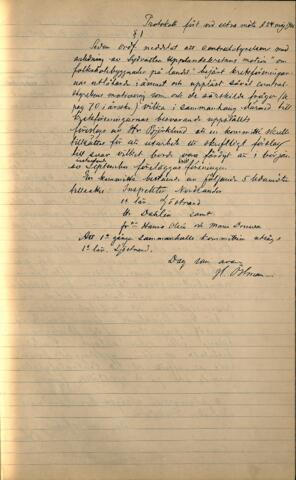 Protokoll fört vid extra möte d. 24 maj
§ 1
Sedan ordf. meddelat att centralstyrelsen med
anledning av Sydvästra Upplandskretsens motion om
folkskolebyggnader på landet begärt kretsföreningar
nas utlåtande i ämnet och uppläst såväl central
styrelsens motivering som och de särskilda frågor (8
på 70 i årsb.) vilka i sammanhang därmed till
kretsföreningarnas besvarande uppställts
förslogs av Hr Björklund att en kommitté skulle
tillsättas för att utarbeta ett skriftligt förslag
till svar vilket borde vara färdigt att i början
av September föreläggas föreningen.
En kommitté bestående av följande 5 ledamöter
tillsattes: Inspektör Nordlander
1e lär. Sjöstrand
Hr Dahlin samt
frkn Hanna Olsén och Maria
Att 1a gång sammankalla kommittén utsågs
1e lär. Sjöstrand.
Dag som ovan
Öhman